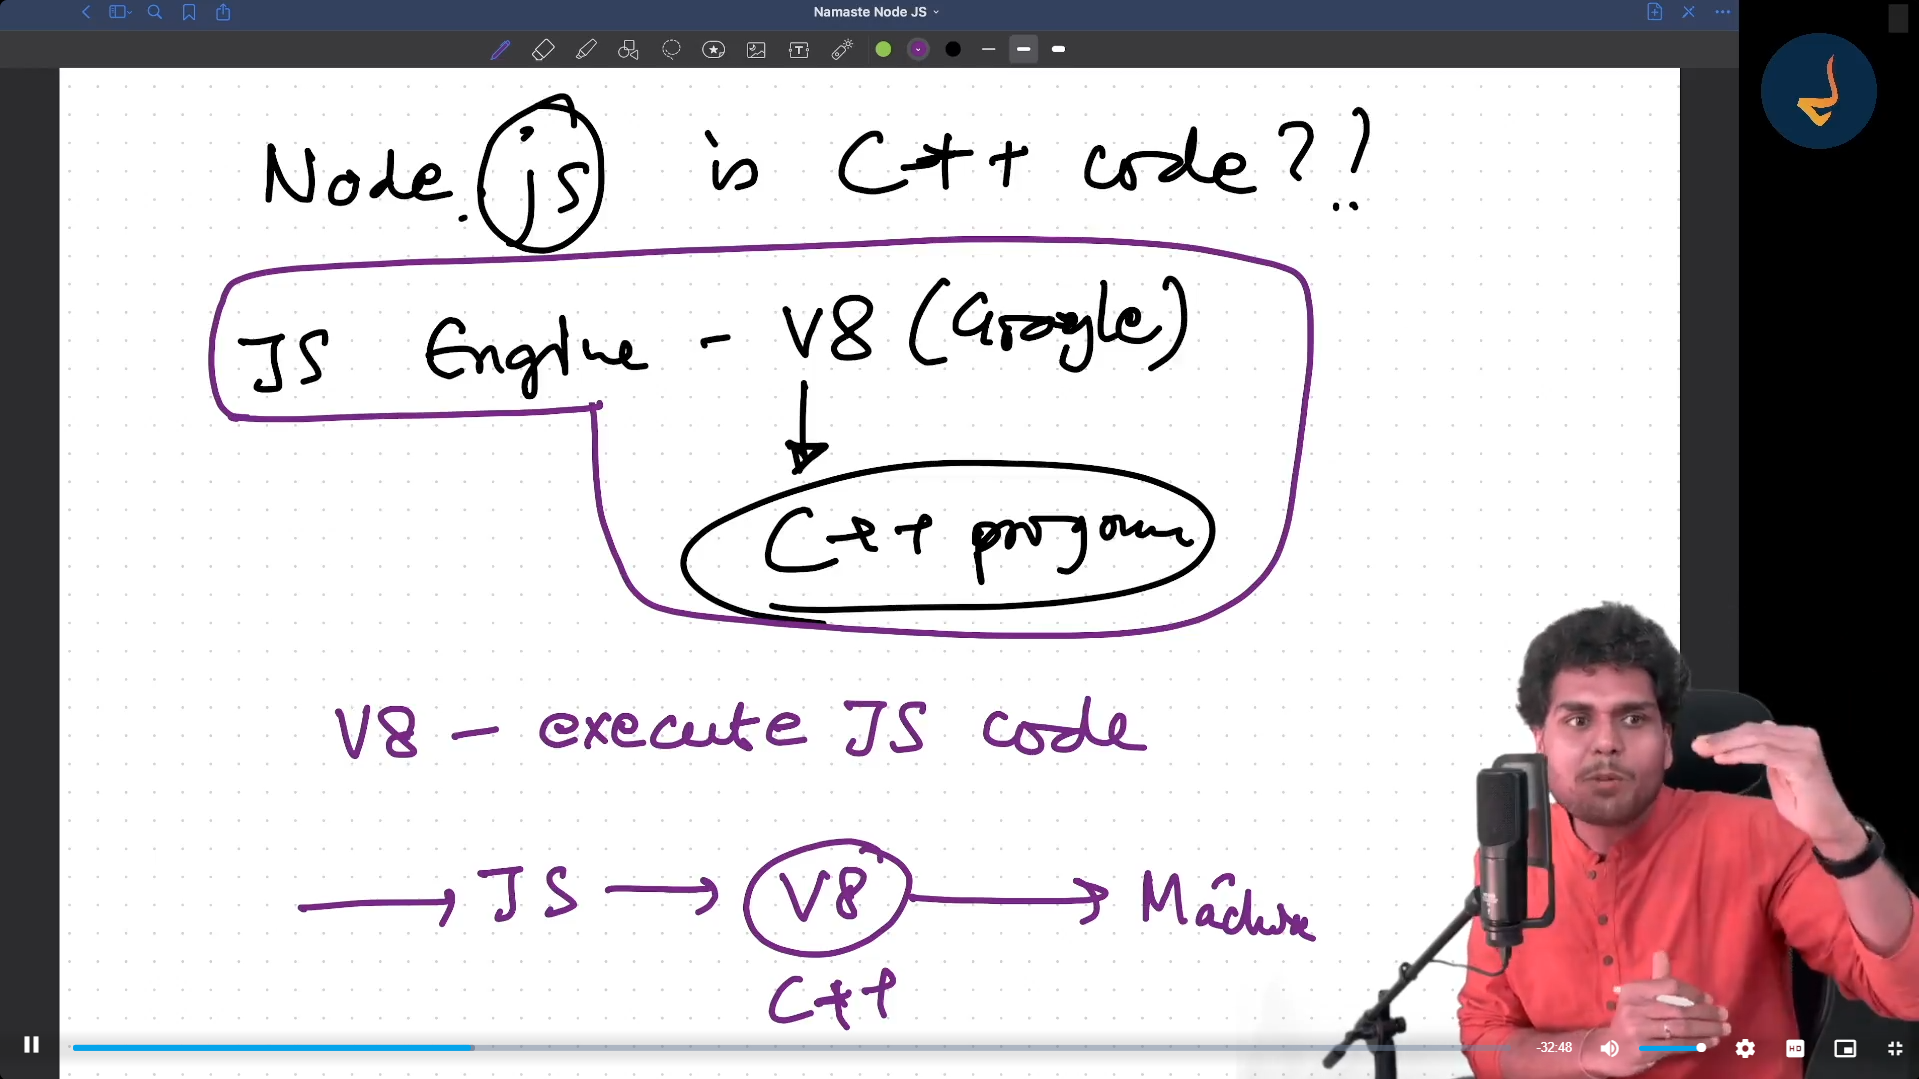 Namaste Node JS
Node.js is C++ code??
JS Engine - V8 (Google)
C++ program
V8 - execute JS code
JS V8 Machine
C++
-32:48
HD